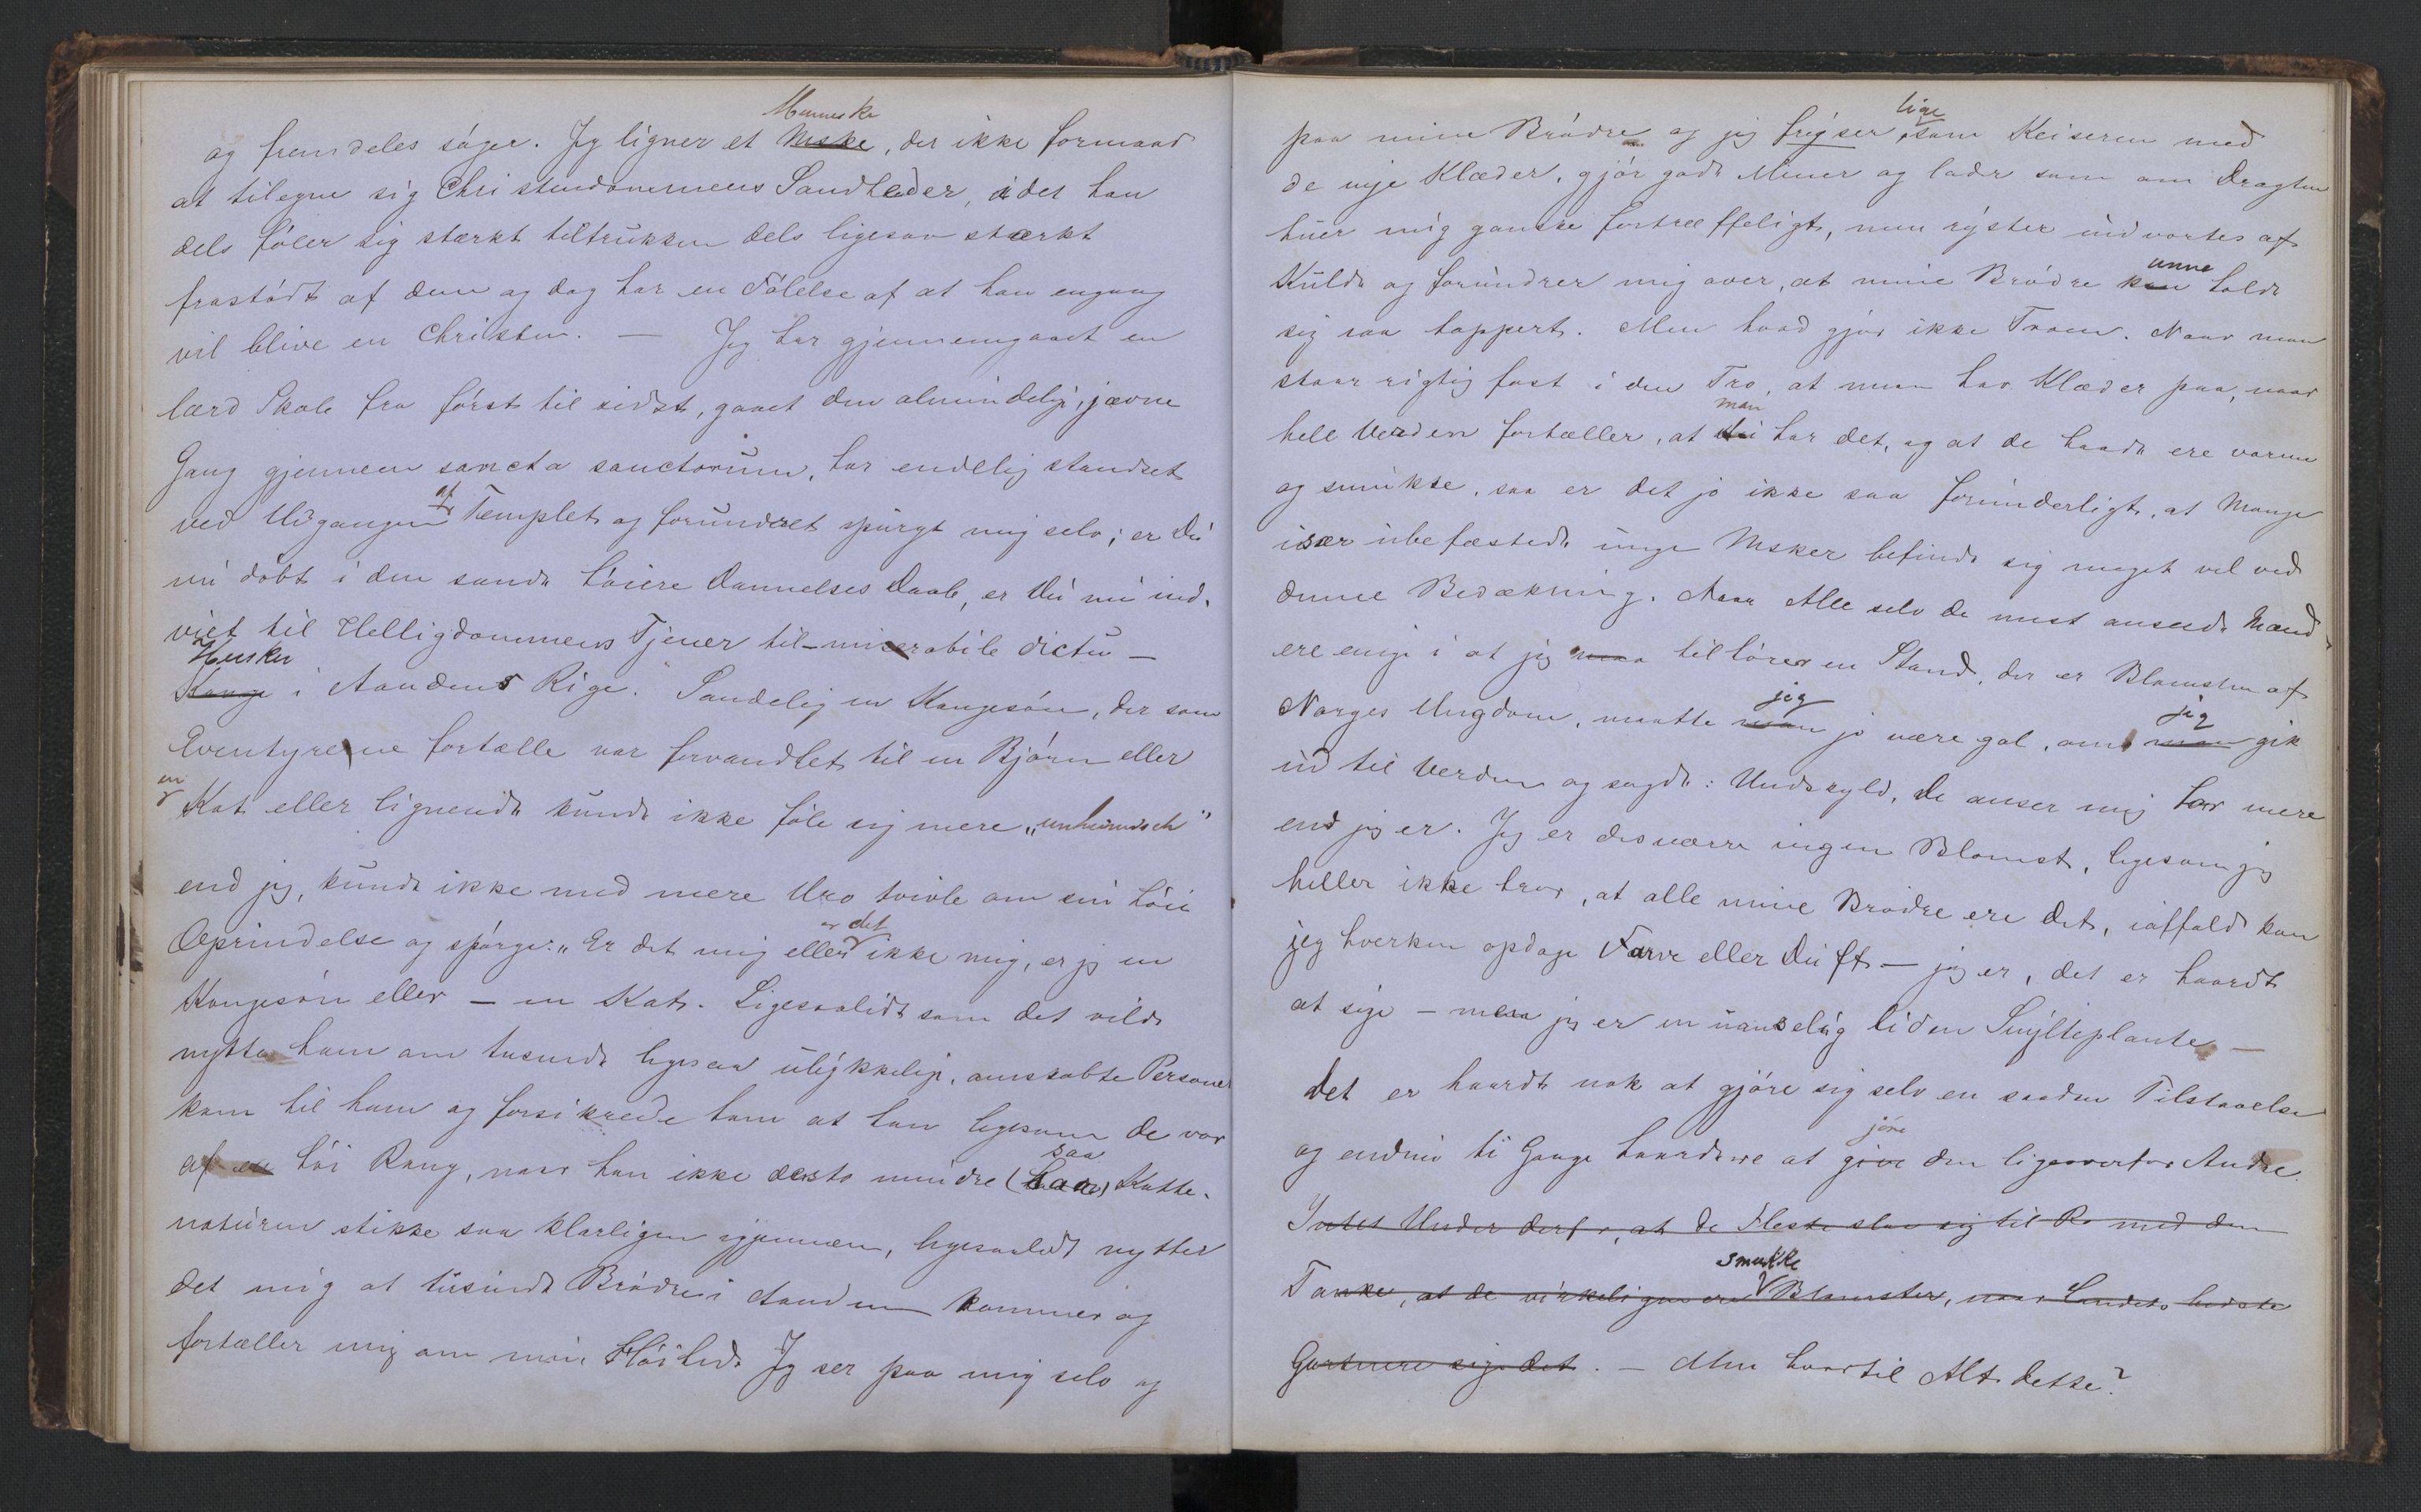 og fremdeles søger. Jeg ligner et Mske Menneske, der ikke formaar
at tilegne sig Christendommens Sandheder, idet han
dels føler sig stærkt tiltrukken dels ligesaa stærkt
frastødt af dem og dog har en Følelse af at han engang
vil blive en Christen. — Jeg har gjennemgaaet en
lærd Skole fra først til sidst, gaaet den almindelige, jævne
Gang gjennem sancta sanctorum, har endelig standset
ved Udgangen af Templet og forundret spurgt mig selv; er Du
nu døbt i den sande høiere Dannelses Daab, er Du nu ind-
viet til Helligdommens Tjener til – miserabile dictu –
Konge Hersker i Aandens Rige. Sandelig en Kongesøn, der som
Eventyrene fortælle var forvandlet til en Bjørn eller
en Kat eller lignende kunde ikke føle sig mere „unheimisch"
end jeg, kunde ikke med mere Uro tvivle om sin høie
Oprindelse og spørge: „Er det mig eller er det ikke mig, er jeg en
Kongesøn eller – en Kat. Ligesaalidt som det vilde
nytte ham om tusende ligesaa ulykkelige, omskabte Personer
kom til ham og forsikrede ham at han ligesom de var
af en høi Rang, naar han ikke desto mindre saa Katte-
naturen stikke saa klarligen igjennem, ligesaalidt nytter
det mig at tusinde Brødre i Aanden kommer og
fortæller mig om min Høihed. Jeg ser paa mig selv og
paa mine Brødre og jeg fryser lige som Keiseren med
de nye Klæder, gjør gode Miner og lader som om Dragten
huer mig ganske fortræffeligt, men ryster indvortes af
Kulde og forundrer mig over, at mine Brødre kan unne holde
sig saa tappert. Men hvad gjør ikke Troen. Naar man
staar rigtig fast i den Tro, at man har Klæder paa, naar
hele Verden fortæller, at du man har det, og at de baade ere varme
og smukke, saa er det jo ikke saa forunderligt, at Mange
især ubefæstede unge Msker befinde sig meget vel ved
denne Bedækning. Naar Alle selv de mest ansede Mænd
ere enige i at jeg maa tilhører en Stand, der er Blomsten af
Norges Ungdom, maatte man jeg jo være gal, om man jeg gik
ud til Verden og sagde: Undskyld, De anser mig for mere
end jeg er. Jeg er desværre ingen Blomst, ligesom jeg
heller ikke tror, at alle mine Brødre ere det, iaffald kan
jeg hverken opdage Farve eller Duft – jeg er, det er haardt
at sige – men jeg er en uanselig liden Snylteplante –
det er haardt nok at gjøre sig selv en saadan Tilstaaelse
og endnu ti Gange haardere at give jøre den ligeoverfor Andre.
Intet Under derfor, at de Fleste slaa sig til Ro med den
Tanke, at de virkeligen ere smukke Blomster, naar Landets bedste
Gartnere sige det. – Men hvortil Alt dette?